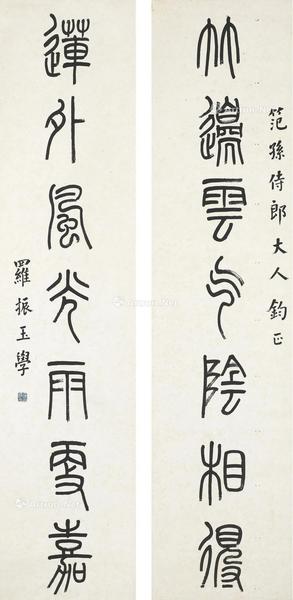 笵孫侍郎大人鈞正
竹邊雲色陰相得
蓮外風光雨更嘉
羅振玉學